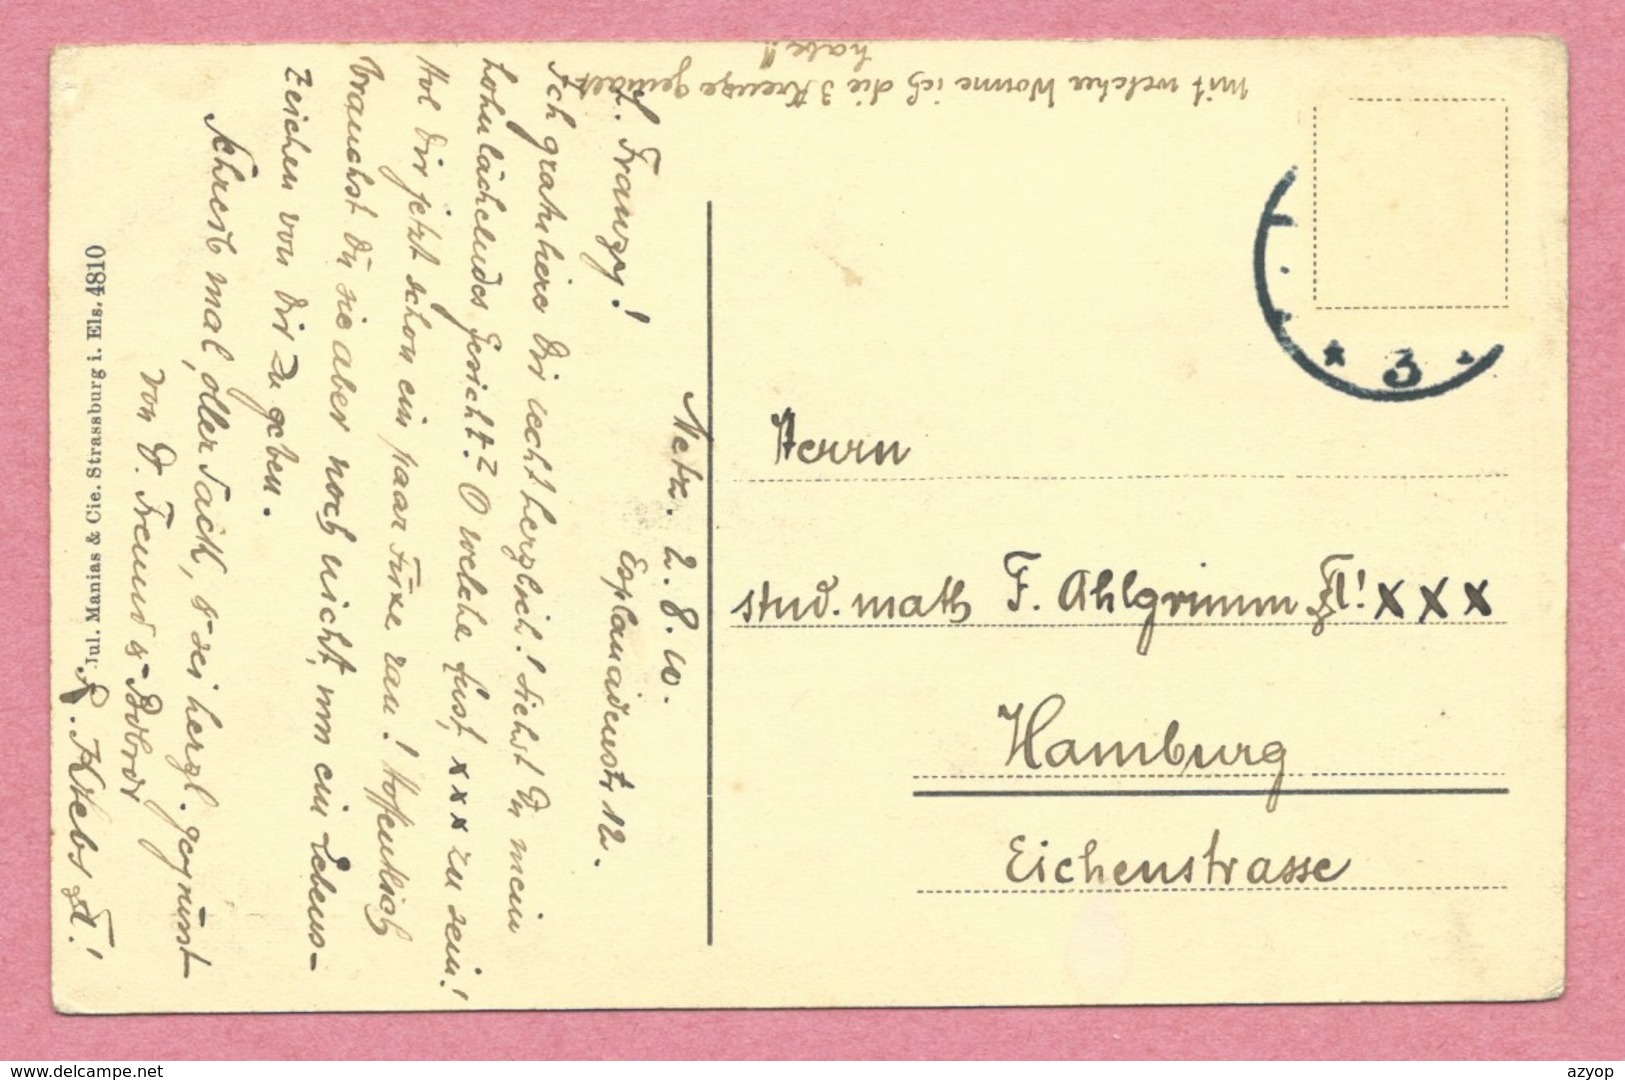 Metz. 2.8.10.
Esplanadenstr 12.
L. Franzy!
Ich gratuliere Dir recht herzlich! Siehst Du mein
hohnlächelndes Gesicht? O welche Lust, xxx zu sein!
Hol Dir jetzt schon ein paar Füxe ran! Hoffentlich
brauchst Du sie aber noch nicht, um ein Lebens-
zeichen von Dir zu geben.
Schreib mal, oller Sack, & sei herzl. gegrüsst
von D. Freund &
Krebs
mit welcher Wonne ich die 3 Kreuze gemalt
habe!!
Herrn
stud. math F. Ahlgrimm xxx
Hamburg
Eichenstrasse
Jul. Manias & Cie. Strassburg i. Els. 4810
* 3
delcampe.net
azyop